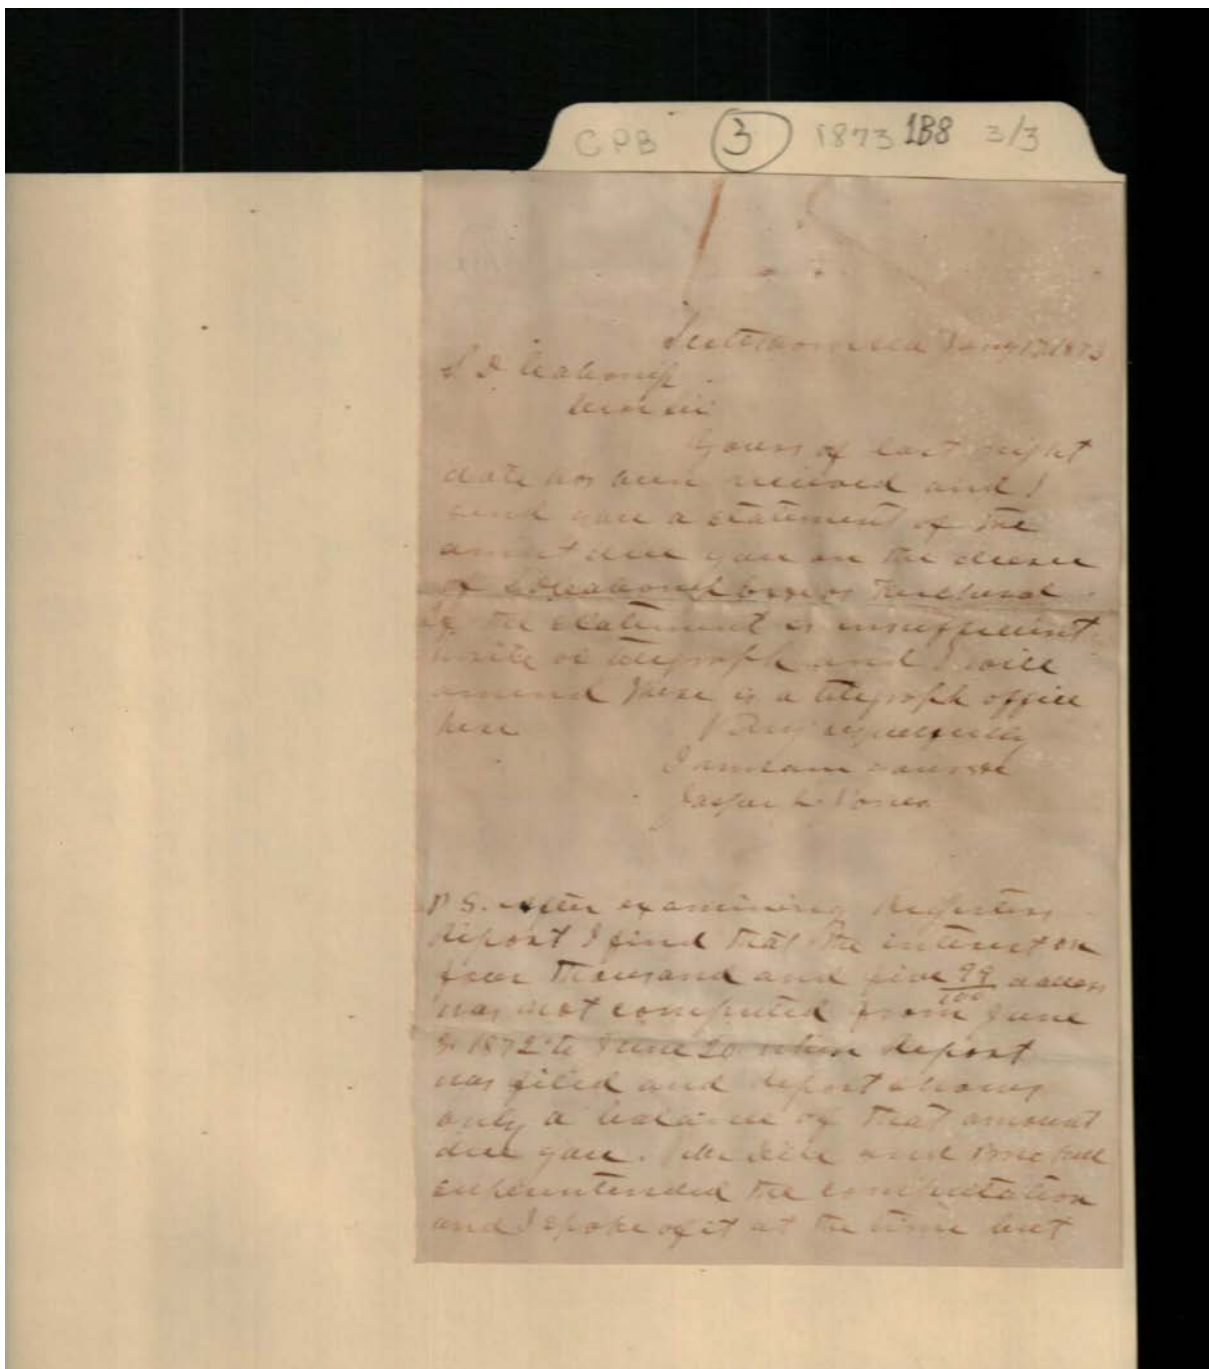 CPB 3 1873 1B8 3/3
1873
Dear Sir
Yours of last night
date has been received and I
send you a statement of the
amnt due you on the decree
of
If the statement is insufficient
write or telegraph and I will
amend There is a telegraph office
here Very respectfully
I am
Jasper
P S. After examining
Report I find that the interest on
four thousand and five 99/100 dollars
was not computed from June
3. 1872 to June 20 when Report
was filed and Report shows
only a balance of that amount
due you. and
superintended the computation
and I spoke of it at the time but